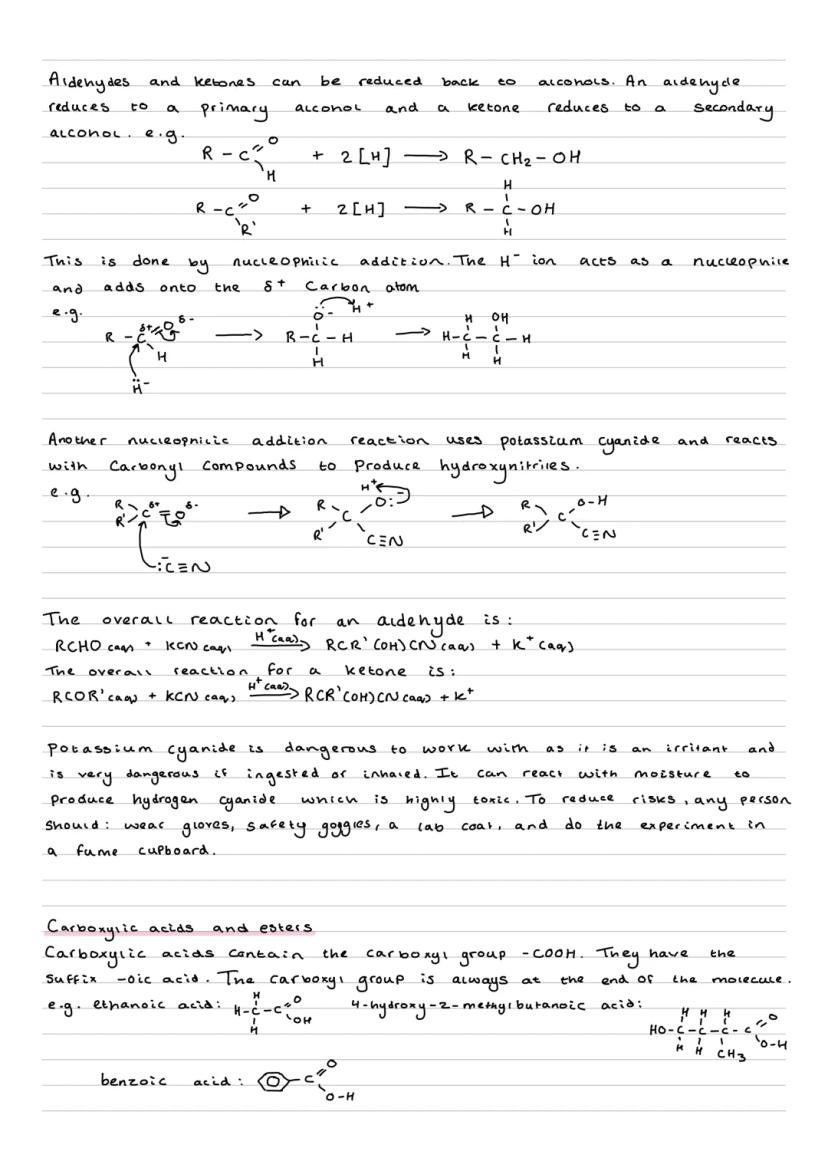 Aldehydes and ketones can be reduced back to alcohols. An aldehyde
reduces to a primary alcohol and a ketone reduces to a secondary
alcohol. e.g.
R - C =O H + 2[H] ⟶ R - CH₂ - OH
R - C =O R' + 2[H] ⟶ R - C - OH H H
This is done by nucleophilic addition. The H⁻ ion acts as a nucleophile
and adds onto the δ+ Carbon atom
e.g.
R - C δ+ = O δ- H :H⁻ ⟶ R - C - H :O:⁻ H H⁺ ⟶ H - C - C - H H OH H H
Another nucleophilic addition reaction uses potassium cyanide and reacts
with Carbonyl Compounds to Produce hydroxynitriles.
e.g.
R R' C δ+ = O δ- ⁻:C≡N ⟶ R R' C O:⁻ H⁺ C≡N ⟶ R R' C O-H C≡N
The overall reaction for an aldehyde is:
RCHO (aq) + KCN (aq) H⁺(aq)⟶ RCR'(OH)CN (aq) + K⁺ (aq)
The overall reaction for a ketone is:
RCOR' (aq) + KCN (aq) H⁺(aq)⟶ RCR'(OH)CN (aq) + K⁺
Potassium cyanide is dangerous to work with as it is an irritant and
is very dangerous if ingested or inhaled. It can react with moisture to
produce hydrogen cyanide which is highly toxic. To reduce risks, any person
should: wear gloves, safety goggles, a lab coat, and do the experiment in
a fume cupboard.
Carboxylic acids and esters
Carboxylic acids contain the carboxyl group -COOH. They have the
suffix -oic acid. The carboxyl group is always at the end of the molecule.
e.g. ethanoic acid: H - C - C =O OH H H 4-hydroxy-2-methylbutanoic acid:
HO - C - C - C - C =O O-H H H H H H CH₃
benzoic acid: C =O O-H